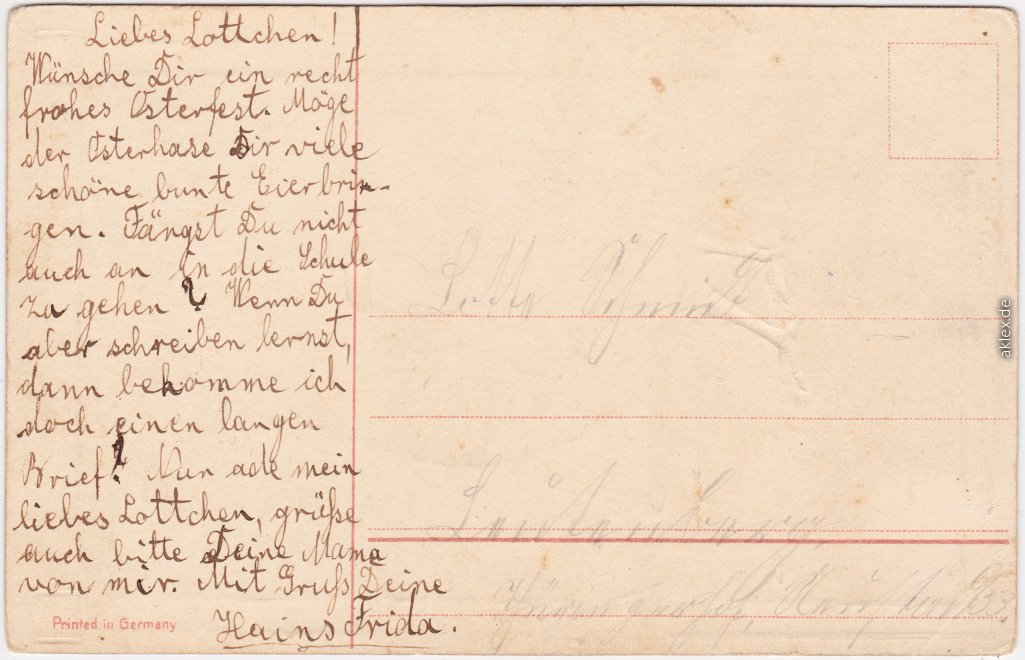 Liebes Lottchen!
Wünsche Dir ein recht
frohes Osterfest. Möge
der Osterhase Dir viele
schöne bunte Eier brin-
gen. Fängst Du nicht
auch an in die Schule
zu gehen? Wenn Du
aber schreiben lernst,
dann bekomme ich
doch einen langen
Brief? Nun ade mein
liebes Lottchen, grüße
auch bitte Deine Mama
von mir. Mit Gruß Deine
Hains Frida.
Printed in Germany
Lotte Schmidt
Leutenberg
aklex.de